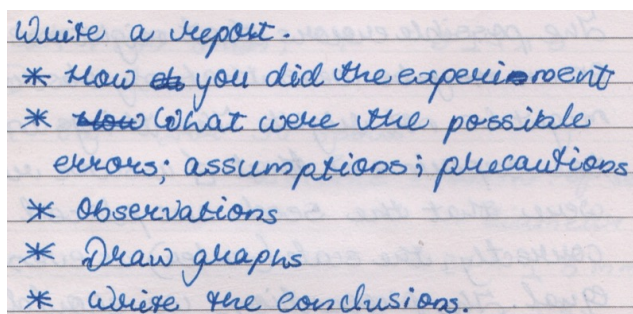 Write a report.
* How you did the experiment
* What were the possible
errors; assumptions; precautions
* Observations
* Draw graphs
* Write the conclusions.